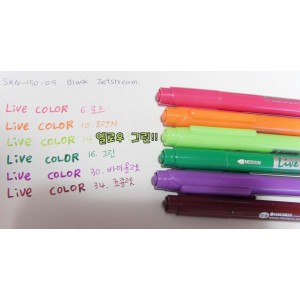 SXN-150-05 Black Jetstream
Live COLOR 6. 핑크
Live COLOR 10. 오렌지
Live COLOR 14. 옐로우 그린!!
Live COLOR 16. 그린
Live COLOR 30. 바이올렛
Live COLOR 34. 초콜렛
MEDIUM Live